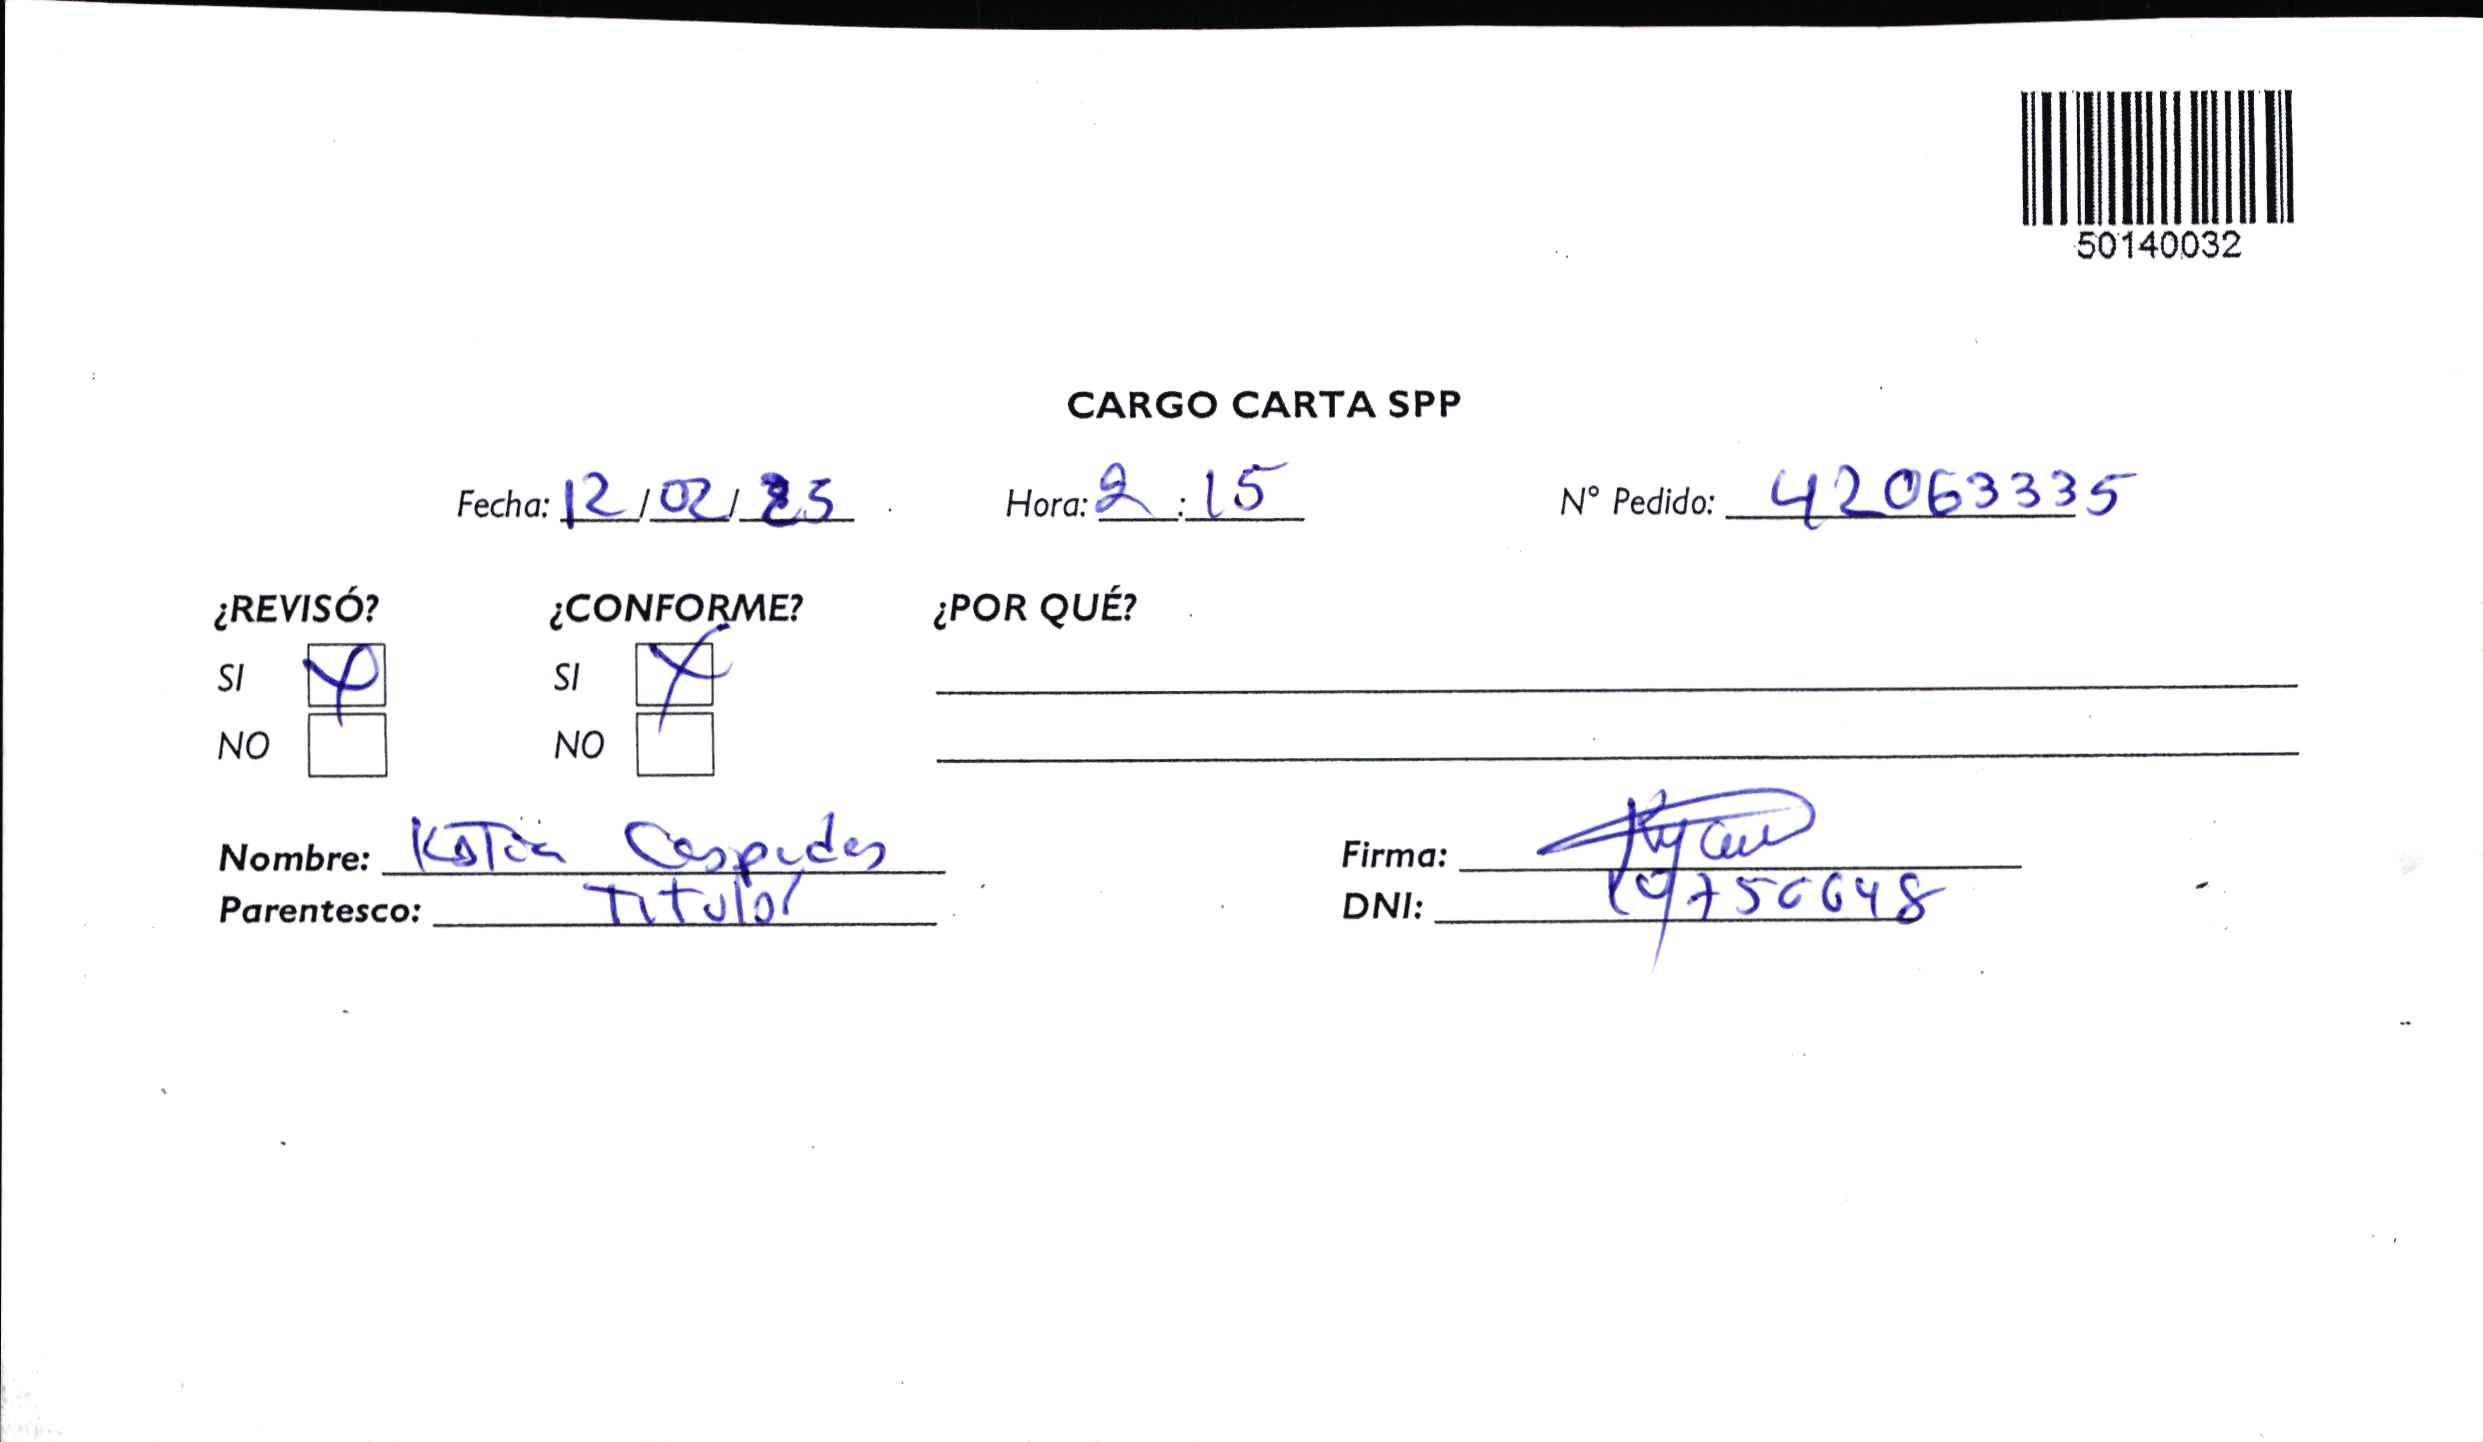 50140032
CARGO CARTA SPP
Fecha: 12/02/25 Hora: 2:15 N° Pedido: 42063335
¿REVISÓ? ¿CONFORME? ¿POR QUÉ?
SI SI
NO NO
Nombre: Katia Cespedes Firma:
Parentesco: Titular DNI: